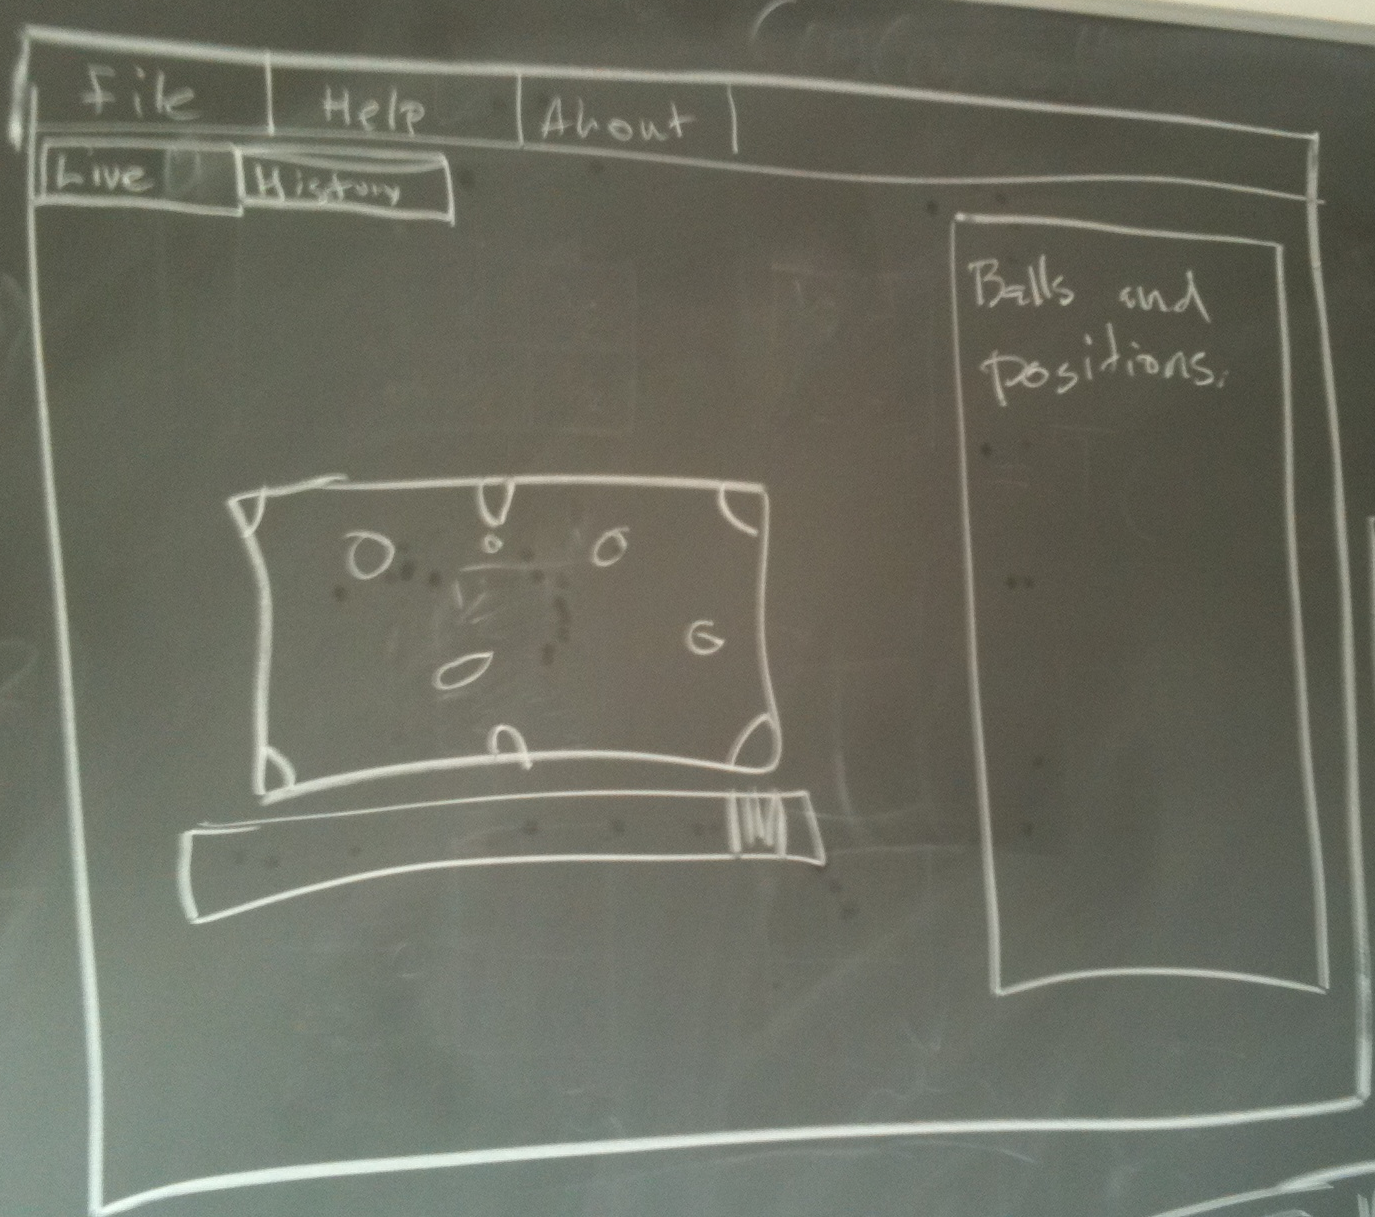 File Help About
Live History
Balls and
positions.